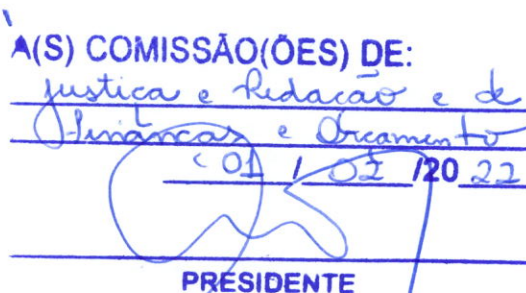 A(S) COMISSÃO(ÕES) DE:
Justiça e Redação e de
Finanças e Orçamento
01 / 02 /20 22
PRESIDENTE